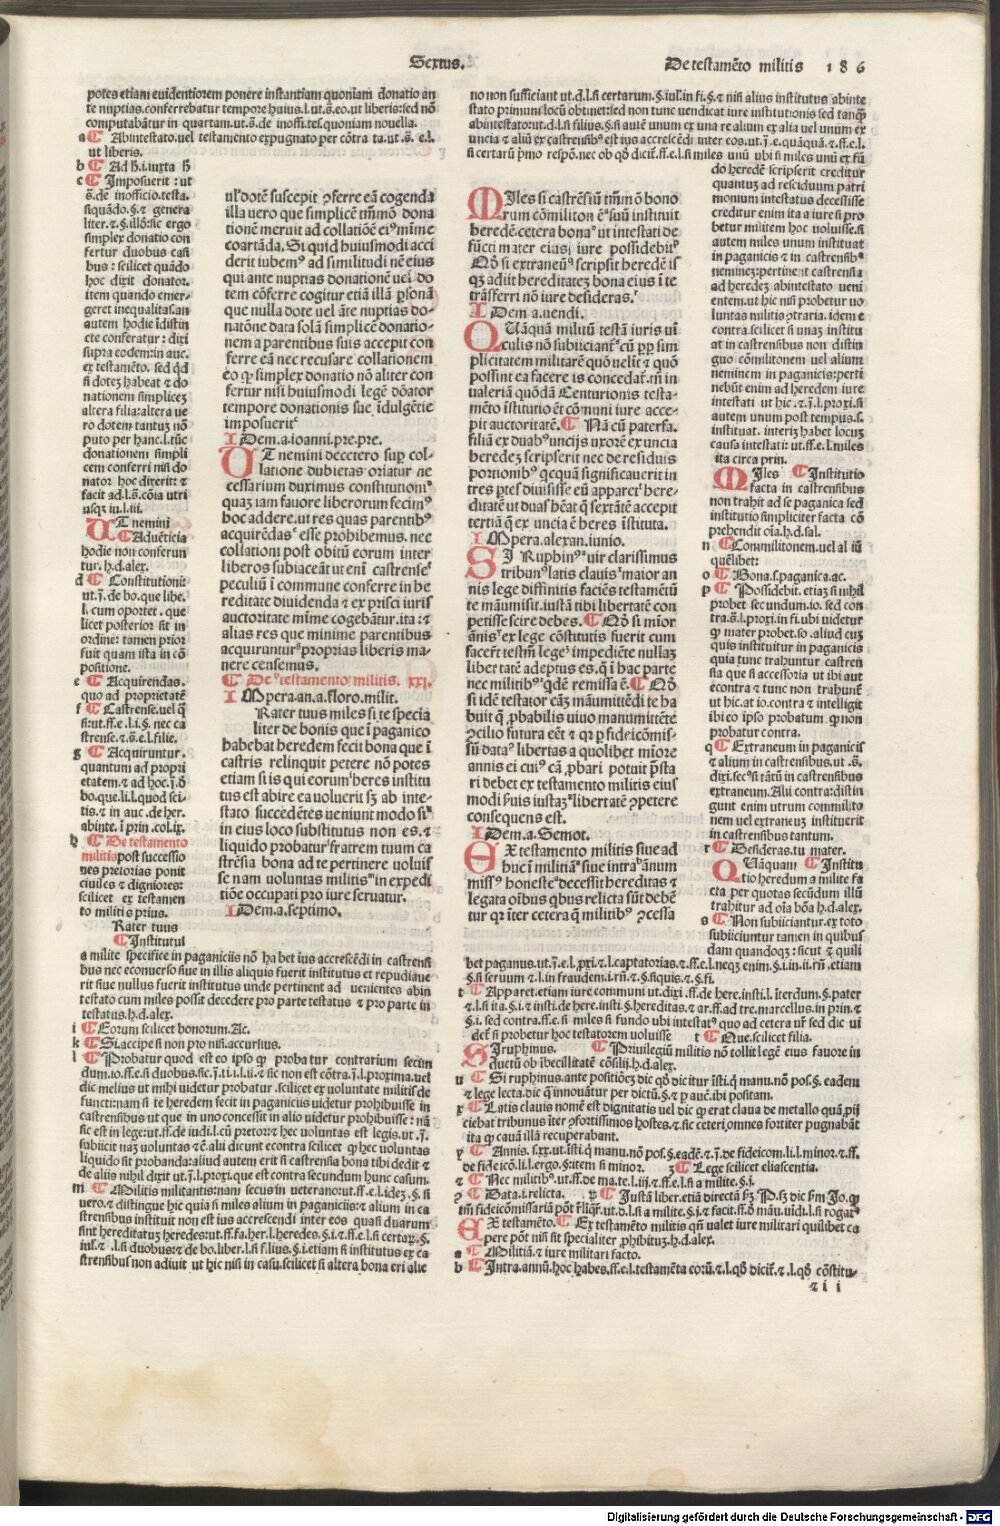 Sextus.
De testamēto militis 186
potes etiam euidentiorem ponere instantiam quoniam donatio an
te nuptias.conferrebatur tempore huius.l.ut.s̄.eo.ut liberis:sed nō
computabātur in quartam.ut.s̄.de inoffi.tes.quoniam nouella.
a Abintestato.uel testamento expugnato per cōtra ta.ut.s̄. e.l.
ut liberis.
b Ad h̄.i.iuxta h̄
c Imposuerit : ut
s̄.de inofficio.testa.
siquādo.§.⁊ genera
liter.⁊.§.illō:sic ergo
simplex donatio con
fertur duobus casi
bus : scilicet quādo
hoc dixit donator.
item quando emer-
geret inequalitas.an
autem hodie īdistin
cte conferatur : dixi
supra eodem:in auc.
ex testamēto. sed qd̄
si dotez habeat ⁊ do
nationem simplicez
altera filia:altera ue
ro dotem tantuz nō
puto per hanc.l.tūc
donationem simpli
cem conferri nisi do
nator hoc dixerit: ⁊
facit ad.l.s̄.cōia utri
usqz iu.l.iii.
UT nemini
Aduēticia
hodie non conferun
tur. h.d.alex.
d Constitutioni:
ut.j̄.de bo.que libe.
l. cum oportet . que
licet posterior sit in
ordine: tamen prior
fuit quam ista in cō
positione.
e Acquirendas.
quo ad proprietatē
f Castrense.uel q̄
si:ut.ff.e.l.i.§. nec ca
strense.⁊.s̄.e.l.filie.
g Acquiruntur.
quantum ad propri
etatem.⁊ ad hoc.j̄.ō
bo.que.li.l.quod sci-
tis.⁊ in auc.de her.
abinte.ī prin.col.ix.
h De testamento
militis post successio
nes pretorias ponit
ciuiles ⁊ digniores:
scilicet ex testamen
to militis prius.
Rater tuus
Institutul
a milite specifice in paganiciis nō ha bet ius accrescēdi in castrensi
bus nec econuerso siue in illis aliquis fuerit institutus et repudiaue
rit siue nullus fuerit institutus unde pertinent ad uenientes abin
testato cum miles possit decedere pro parte testatus ⁊ pro parte in
testatus.h.d.alex.
i Eorum scilicet bonorum.Ac.
k Si.accipe si non pro nisi.accursius.
l Probatur quod est eo ipso ꝙ proba tur contrarium secūn
dum.io.ff.e.si duobus.sic.j̄.ti.i.l.ii.⁊ sic non est cōtra.j̄.l.proxima.uel
dic melius ut mihi uidetur probatur .scilicet ex uoluntate militis de
functi:nam si te heredem fecit in paganiciis uidetur prohibuisse in
castrensibus ut que in uno concessit in alio uidetur prohibuisse : nā
sic est in lege:ut.ff.de iudi.l.cū pretor:⁊ hec uoluntas est legis.ut .j̄.
subiicit naz uoluntas ⁊c̄.alii dicunt econtra scilicet ꝙ hec uoluntas
liquido sit probanda:aliud autem erit si castrensia bona tibi dedit ⁊
de aliis nihil dixit ut.j̄.l.proxi.que est contra secundum hunc casum.
m Militis militantis:nam secus in ueterano:ut.ff.e.l.idez.§. si
uero.⁊ distingue hic quia si miles alium in paganiciis:⁊ alium in ca
strensibus instituit non est ius accrescendi inter eos quasi duarum
sint hereditatuz heredes:ut.ff.fa.her.l.heredes.§.i.⁊.ff.e.l.si certaz.§.
iul.⁊ .l.si duobus:⁊ de bo.liber.l.si filius.§.i.etiam si institutus ex ca
strensibus non adiuit ut hic nisi in casu.scilicet si altera bona eri alie
ul' dotē suscepit ꝯferre eā cogenda
illa uero que simplicē tm̄mō dona
tionē meruit ad collatiōē eiꝰ mīme
coartāda. Si quid huiusmodi acci
derit iubemꝰ ad similitudi nē eius
qui ante nuptias donationē uel do
tem cōferre cogitur etiā illā ꝑsonā
que nulla dote uel āte nuptias do-
natōne data solā simplicē donatio-
nem a parentibus suis accepit con
ferre eā nec recusare collationem
eo ꝙ simplex donatio nō aliter con
fertur nisi huiusmodi legē dōator
tempore donationis sue idulgētie
imposuerit
IDem.a.ioanni.pre.pre.
UT nemini decetero sup̄ col-
latione dubietas oriatur ne
cessarium duximus constitutioni
quaz iam fauore liberorum fecimꝰ
hoc addere.ut res quas parentibꝰ
acquirēdas esse prohibemus. nec
collationi post obitū eorum inter
liberos subiaceāt ut enī castrense
peculiū ī commune conferre in he
reditate diuidenda ⁊ ex prisci iuris
auctoritate mīme cogebātur.ita :⁊
alias res que minime parentibus
acquiruntur proprias liberis ma-
nere censemus.
De testamento militis. xxj.
IMpera.an.a.floro.milit.
Rater tuus miles si te specia
liter de bonis que ī paganico
habebat heredem fecit bona que ī
castris relinquit petere nō potes
etiam si is qui eorum heres institu
tus est abire ea uoluerit sꝫ ab inte-
stato succedētes ueniunt modo si
in eius loco substitutus non es.⁊
liquido probatur fratrem tuum ca
strēsia bona ad te pertinere uoluis
se nam uoluntas militis in expedi
tiōe occupati pro iure seruatur.
IDem.a.septimo.
no non sufficiant ut.d.l.si certarum.§.iul'.in fi.§.⁊ nisi alius institutus abinte
stato primum locū obtinet:sed non tunc uendicat iure institutionis sed tanq̄
abintestato:ut.d.l.si filius.§.si autē unum ex una re alium ex alia uel unum ex
uncia ⁊ aliū ex castrensibꝰ est ius accrescēdi inter eos.ut.j̄.e.quāquā.⁊.ff.e.l.
si certarū p̄mo respon̄.nec ob qō dicit̄.ff.e.l.si miles unū ubi si miles unū ex fū
do heredē scripserit creditur
quantuz ad residuum patri
monium intestatus decessisse
creditur enim ita a iure si pro
betur militem hoc uoluisse.si
autem miles unum instituat
in paganicis ⁊ in castrensibꝰ
neminez:pertinent castrensia
ad heredez abintestato ueni
entem.ut hic nisi probetur uo
luntas militis ꝯtraria. idem e
contra.scilicet si unaz institu
at in castrensibus non distin
guo cōmilitonem uel alium
neminem in paganicis:perti
nebūt enim ad heredem iure
intestati ut hic .⁊.j̄.l.proxi.si
autem unum post tempus.s.
instituat. interiz habet locuz
causa intestati: ut.ff.e.l.miles
ita circa prin.
MIles Institutio
facta in castrensibus
non trahit ad se paganica sed
institutio simpliciter facta cō
prehendit oīa.h.d.sal.
n Commilitonem.uel al iū
quēlibet:
o Bona.s.paganica.ac.
p Possidebit. etiaz si nihil
probet secundum.io. sed con
tra.s̄.l.proxi.in fi.ubi uidetur
ꝙ mater probet.so.aliud cuz
quis instituitur in paganicis
quia tunc trahuntur castren
sia que si accessoria ut ibi aut
econtra ⁊ tunc non trahunt̄
ut hic.at io.contra ⁊ intelligit
ibi eo ipso probatum ꝙ non
probatur contra.
q Extraneum in paganicis
⁊ alium in castrensibus.ut .s̄.
dixi.secꝰ si tātū in castrensibus
extraneum.Alii contra:distin
gunt enim utrum commilito
nem uel extraneuz instituerit
in castrensibus tantum.
r Desideras.tu mater.
QUanquam Institu
tio heredum a milite fa
cta per quotas secūdum illū
trahitur ad oīa bōa.h.d.alex.
s Non subiiciantur.ex toto
subiiciuntur tamen in quibus
dam quandoqz : sicut ⁊ quili
bet paganus.ut.j̄.e.l.pxi.⁊.l.captatorias.⁊.ff.e.l.neqz enim.§.i.in.ii.rn̄. etiam
§.si seruum ⁊.l.in fraudem.i.rn̄.⁊.§.siquis.⁊.§.fi.
t Apparet.etiam iure communi ut.dixi .ff.de here.insti.l. iterdum.§.pater
⁊.l.si ita.§.i.⁊ insti.de here.insti.§.hereditas.⁊ ar.ff.ad tre.marcellus.in prin.⁊
§.i. sed contra.ff.e.si miles si fundo ubi intestatꝰ quo ad cetera ur̄ sed dic ui
det̄ si probetur hoc testatorem uoluisse t Que.scilicet filia.
SI ruphinus. Priuilegiū militis nō tollit legē eius fauore in
ductū ob ībecillitatē cōsilij.h.d.alex.
u Si ruphinus.ante positiōez dic qō dicitur īsti.q̄ manu.nō pos.§. eadem
⁊ lege lecta.dic q̄ innouātur per dictū.§.⁊ p̄ autē.ibi positam.
x Latis clauis nomē est dignitatis uel dic ꝙ erat claua de metallo quā p̄ij
ciebat tribunus iter ꝯfortissimos hostes.⁊ sic ceteri,omnes fortiter pugnabāt
ita ꝙ cauā illā recuperabant.
y Annis.s.xx.ut.īsti.q̄ manu.nō pos.§.eadē.⁊.j̄.de fideicom.li.l.minor.⁊.ff.
de fideicō.li.l.ergo.§:item si minor. z Lege scilicet eliascentia.
⁊ Nec militibꝰ.ut.ff.de ma.te.l.iij.⁊.ff.e.l.si a milite.§.j.
ꝯ Data.i.relicta. Justā liber.etiā directa s̄ꝫ.
EX testamēto. Ex testamēto militis qn̄ ualet iure militari quilibet ca
pere pōt nisi sit specialiter ꝓhibituz.h.d.alex.
a Militiā.⁊ iure militari facto.
b Intra.annū.hoc habes.ff.e.l.testamēta eorū.⁊.l.qō dicit̄.⁊.l.qō cōstitu-
⁊ i i
MIles si castrēsiū tm̄mō bono
rum cōmiliton ē suū instituit
heredē.cetera bona ut intestati de
fūcti mater eius iure possidebit
Qō si extraneū scripsit heredē is
qꝫ adiit hereditatez bona eius ī te
trāsferri nō iure desideras.
IDem a.uendi.
QUāquā militū testā iuris uī
culis nō subiiciant̄ cū ꝓp̄ sim
plicitatem militarē quō uelīt ⁊ quō
possint ea facere is concedat̄.tn̄ in
ualeriā quōdā Centurionis testa-
mēto īstitutio ēt cōmuni iure acce-
pit auctoritatē. Nā cū paterfa.
filiā ex duabꝰ uncijs uxorē ex uncia
heredez scripserit nec de residuis
portionibꝰ qcquā significauerit in
tres ꝑtes diuisisse eū apparet here-
ditatē ut duas hēat q̄ sextātē accepit
tertiā q̄ ex uncia ē heres īstituta.
IMpera.alexan.iunio.
SI Ruphinꝰ uir clarissimus
tribunꝰ latis clauis maior an
nis lege diffinitis faciēs testamētū
te māumisit.iustā tibi libertatē con
petisse scire debes. Qō si mior
ānis ex lege cōstitutis fuerit cum
facer̄t testm̄ lege impediēte nullaz
liber tatē adeptus es.q̄ ī hac parte
nec militibꝰ qdē remissa ē. Qō
si idē testator cāz māumittēdi te ha
buit q̄ ꝓbabilis uiuo manumittēte
ꝯcilio futura eēt ⁊ qr ꝑ fideicōmis-
sū data libertas a quolibet mīore
annis ei cuiꝰ cā ꝓbari potuit p̄sta
ri debet ex testamento militis eius
modi suis iustaz libertatē ꝯpetere
consequens est.
IDem.a.Semot.
EX testamento militis siue ad
huc ī militia siue intra ānum
missꝰ honeste decessit hereditas ⁊
legata oībus qbus relicta sūt debē
tur qr īter cetera q̄ militibꝰ ꝯcessa
Digitalisierung gefördert durch die Deutsche Forschungsgemeinschaft - DFG